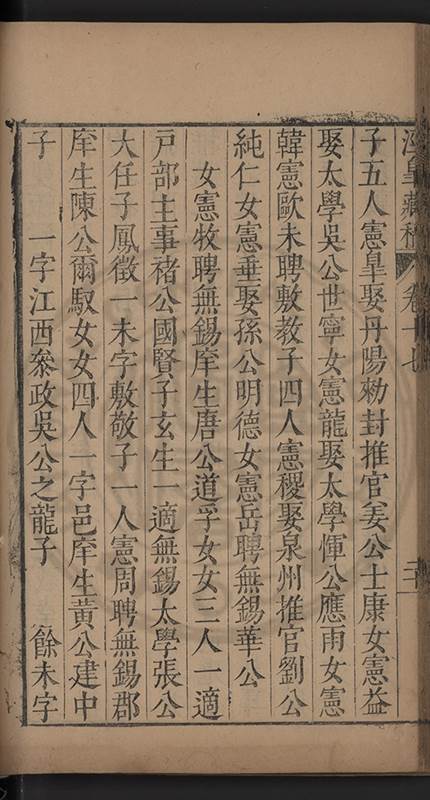 涇皋藏稿 卷十七 二十
子五人憲臯娶丹陽勑封推官姜公士康女憲益
娶太學吳公世寧女憲龍娶太學惲公應雨女憲
韓憲歐未聘敷教子四人憲稷娶泉州推官劉公
純仁女憲垂娶孫公明德女憲岳聘無錫華公
女憲牧聘無錫庠生唐公道孚女女三人一適
戸部主事禇公國賢子玄生一適無錫太學張公
大任子鳳徵一未字敷敬子一人憲周聘無錫郡
庠生陳公爾馭女女四人一字邑庠生黃公建中
子 一字江西叅政吳公之龍子 餘未字